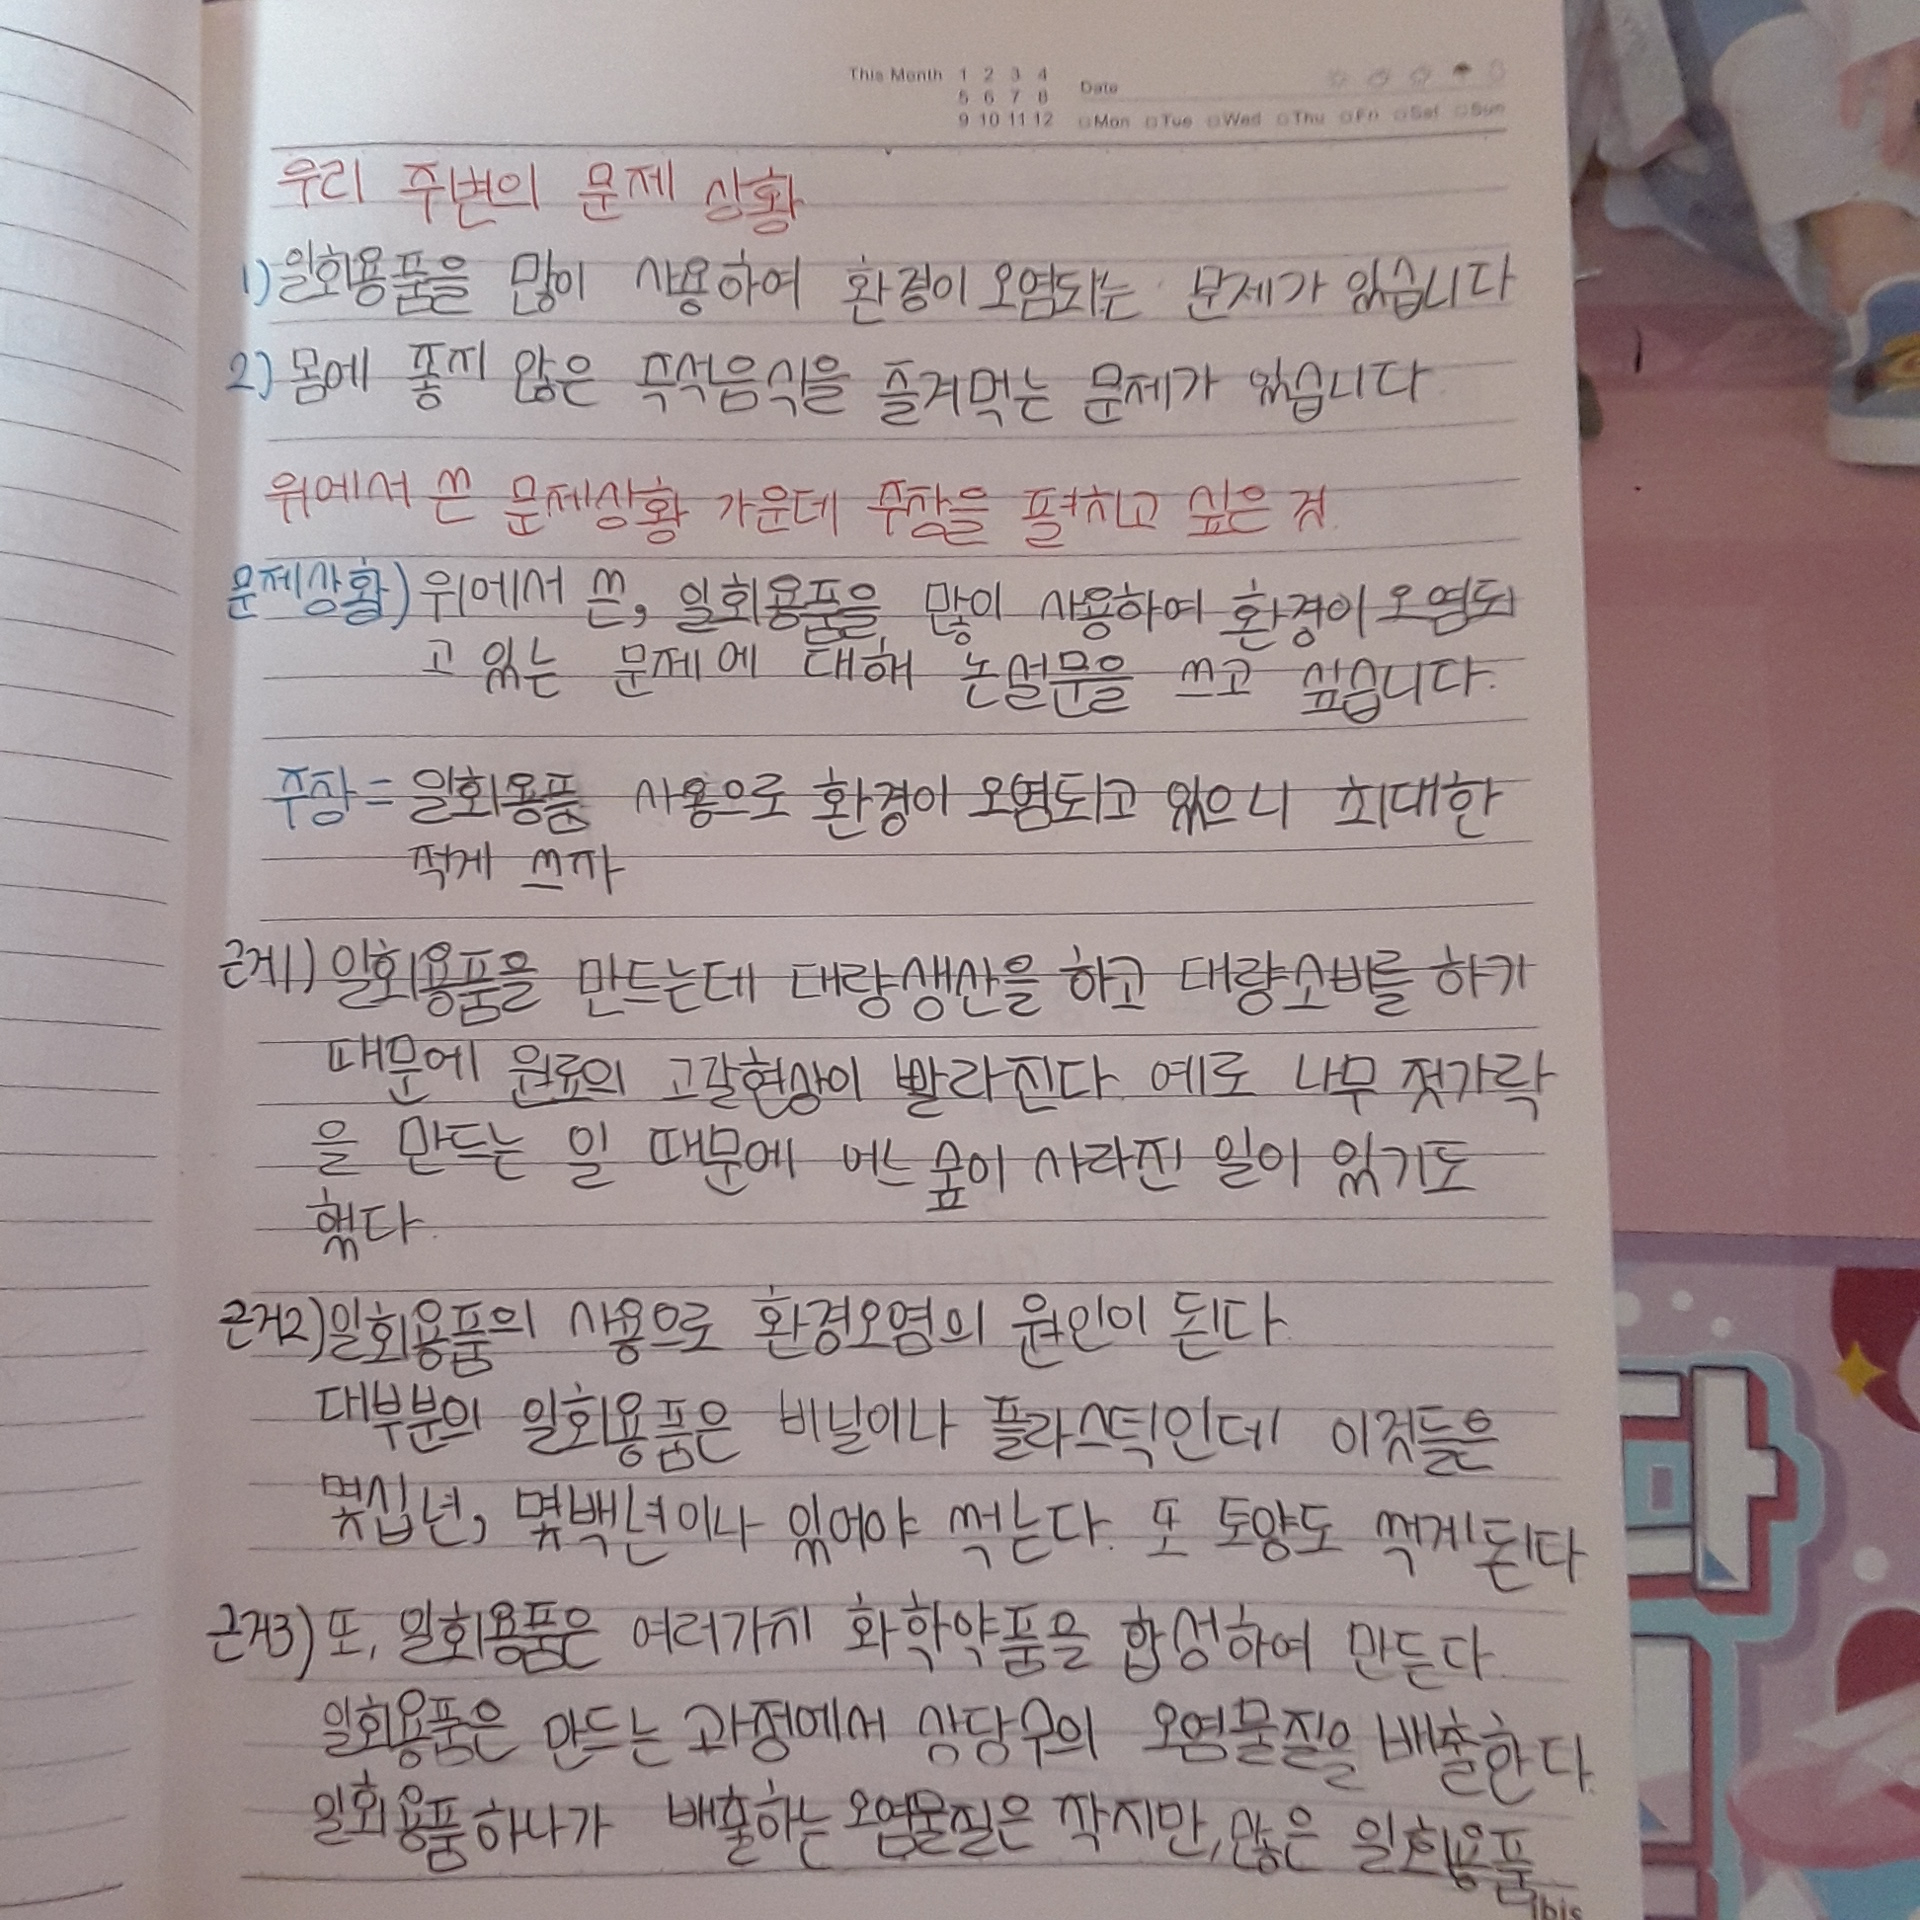 This Month 1 2 3 4
5 6 7 8
9 10 11 12
Date
Mon Tue Wed Thu Fri Sat Sun
우리 주변의 문제 상황
1) 일회용품을 많이 사용하여 환경이 오염되는 문제가 있습니다
2) 몸에 좋지 않은 즉석음식을 즐겨먹는 문제가 있습니다
위에서 쓴 문제상황 가운데 주장을 펼치고 싶은 것
문제상황) 위에서 쓴, 일회용품을 많이 사용하여 환경이 오염되
고 있는 문제에 대해 논설문을 쓰고 싶습니다.
주장= 일회용품 사용으로 환경이 오염되고 있으니 최대한
적게 쓰자
근거1) 일회용품을 만드는데 대량생산을 하고 대량소비를 하기
때문에 원료의 고갈현상이 빨라진다. 예로 나무 젓가락
을 만드는 일 때문에 어느 숲이 사라진 일이 있기도
했다.
근거2) 일회용품의 사용으로 환경오염의 원인이 된다.
대부분의 일회용품은 비닐이나 플라스틱인데 이것들은
몇십년, 몇백년이나 있어야 썩는다. 또 토양도 썩게된다
근거3) 또, 일회용품은 여러가지 화학약품을 합성하여 만든다.
일회용품은 만드는 과정에서 상당수의 오염물질을 배출한다.
일회용품하나가 배출하는 오염물질은 작지만, 많은 일회용품
ibis